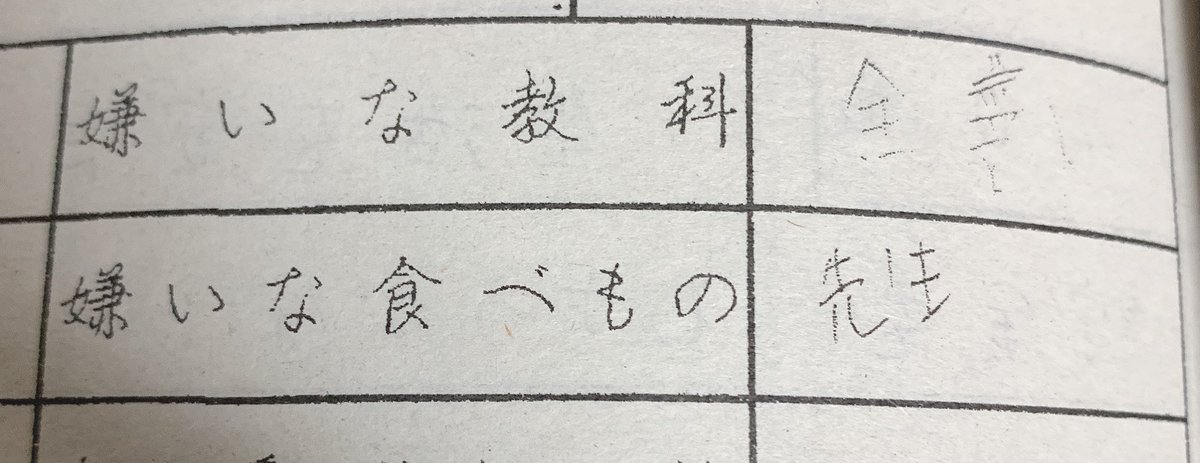 嫌いな教科
嫌いな食べもの 先生